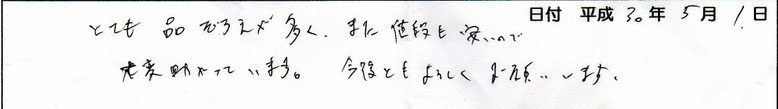 日付 平成 30年 5月 1日
とても 品ぞろえが 多く、また 値段も 安いので
大変助かっています。 今後ともよろしく お願いします。